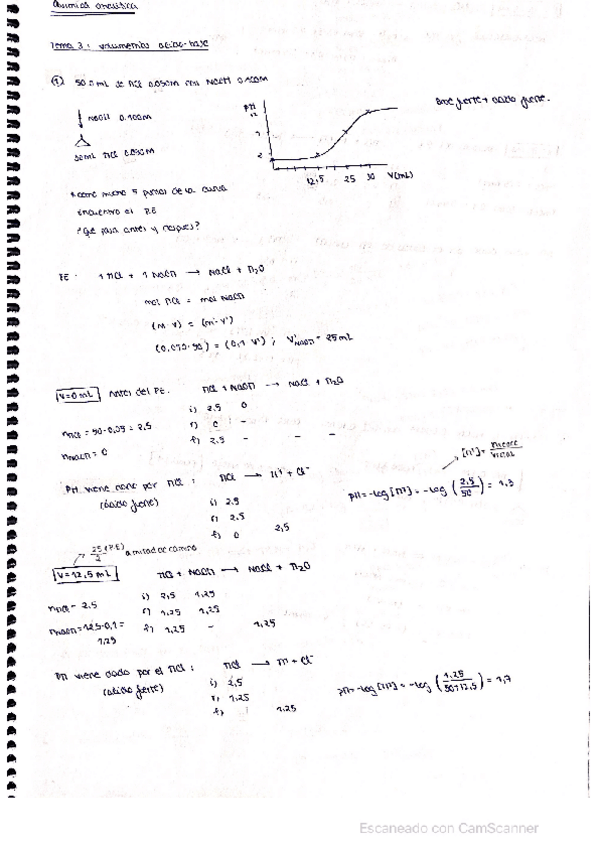 Química analítica
Tema 3: volumetrías ácido-base
① 50.0 mL de HCl 0.050M con NaOH 0.100M
Base fuerte + ácido fuerte.
NaOH 0.100M
50mL HCl 0.050M
pH
12
7
2
12,5 25 30 V(mL)
*como mucho 5 puntos de la curva
encuentro el P.E
¿Qué pasa antes y después?
PE: 1 HCl + 1 NaOH → NaCl + H₂O
mol HCl = mol NaOH
(M·V) = (M'·V')
(0,050·50) = (0,1·V') ; V'NaOH = 25mL
V=0 mL Antes del PE. HCl + NaOH → NaCl + H₂O
i) 2.5 0
nHCl = 50·0,05 = 2,5 r) 0 -
nNaOH = 0 f) 2,5 - - -
[H⁺] =
pH viene dado por HCl: HCl → H⁺ + Cl⁻
(ácido fuerte) i) 2,5
pH = -log [H⁺] = -log (2,5/50) = 1,3
r) 2,5
f) 0 2,5
25 (P.E)/2 a mitad de camino
V=12,5 mL HCl + NaOH → NaCl + H₂O
nHCl = 2.5 i) 2,5 1,25
nNaOH = 12,5·0,1 = r) 1,25 1,25
1,25 f) 1,25 - 1,25
pH viene dado por el HCl: HCl → H⁺ + Cl⁻
(ácido fuerte) i) 2,5
pH = -log [H⁺] = -log (1,25/50+12,5) = 1,7
r) 1,25
f) 1,25
Escaneado con CamScanner